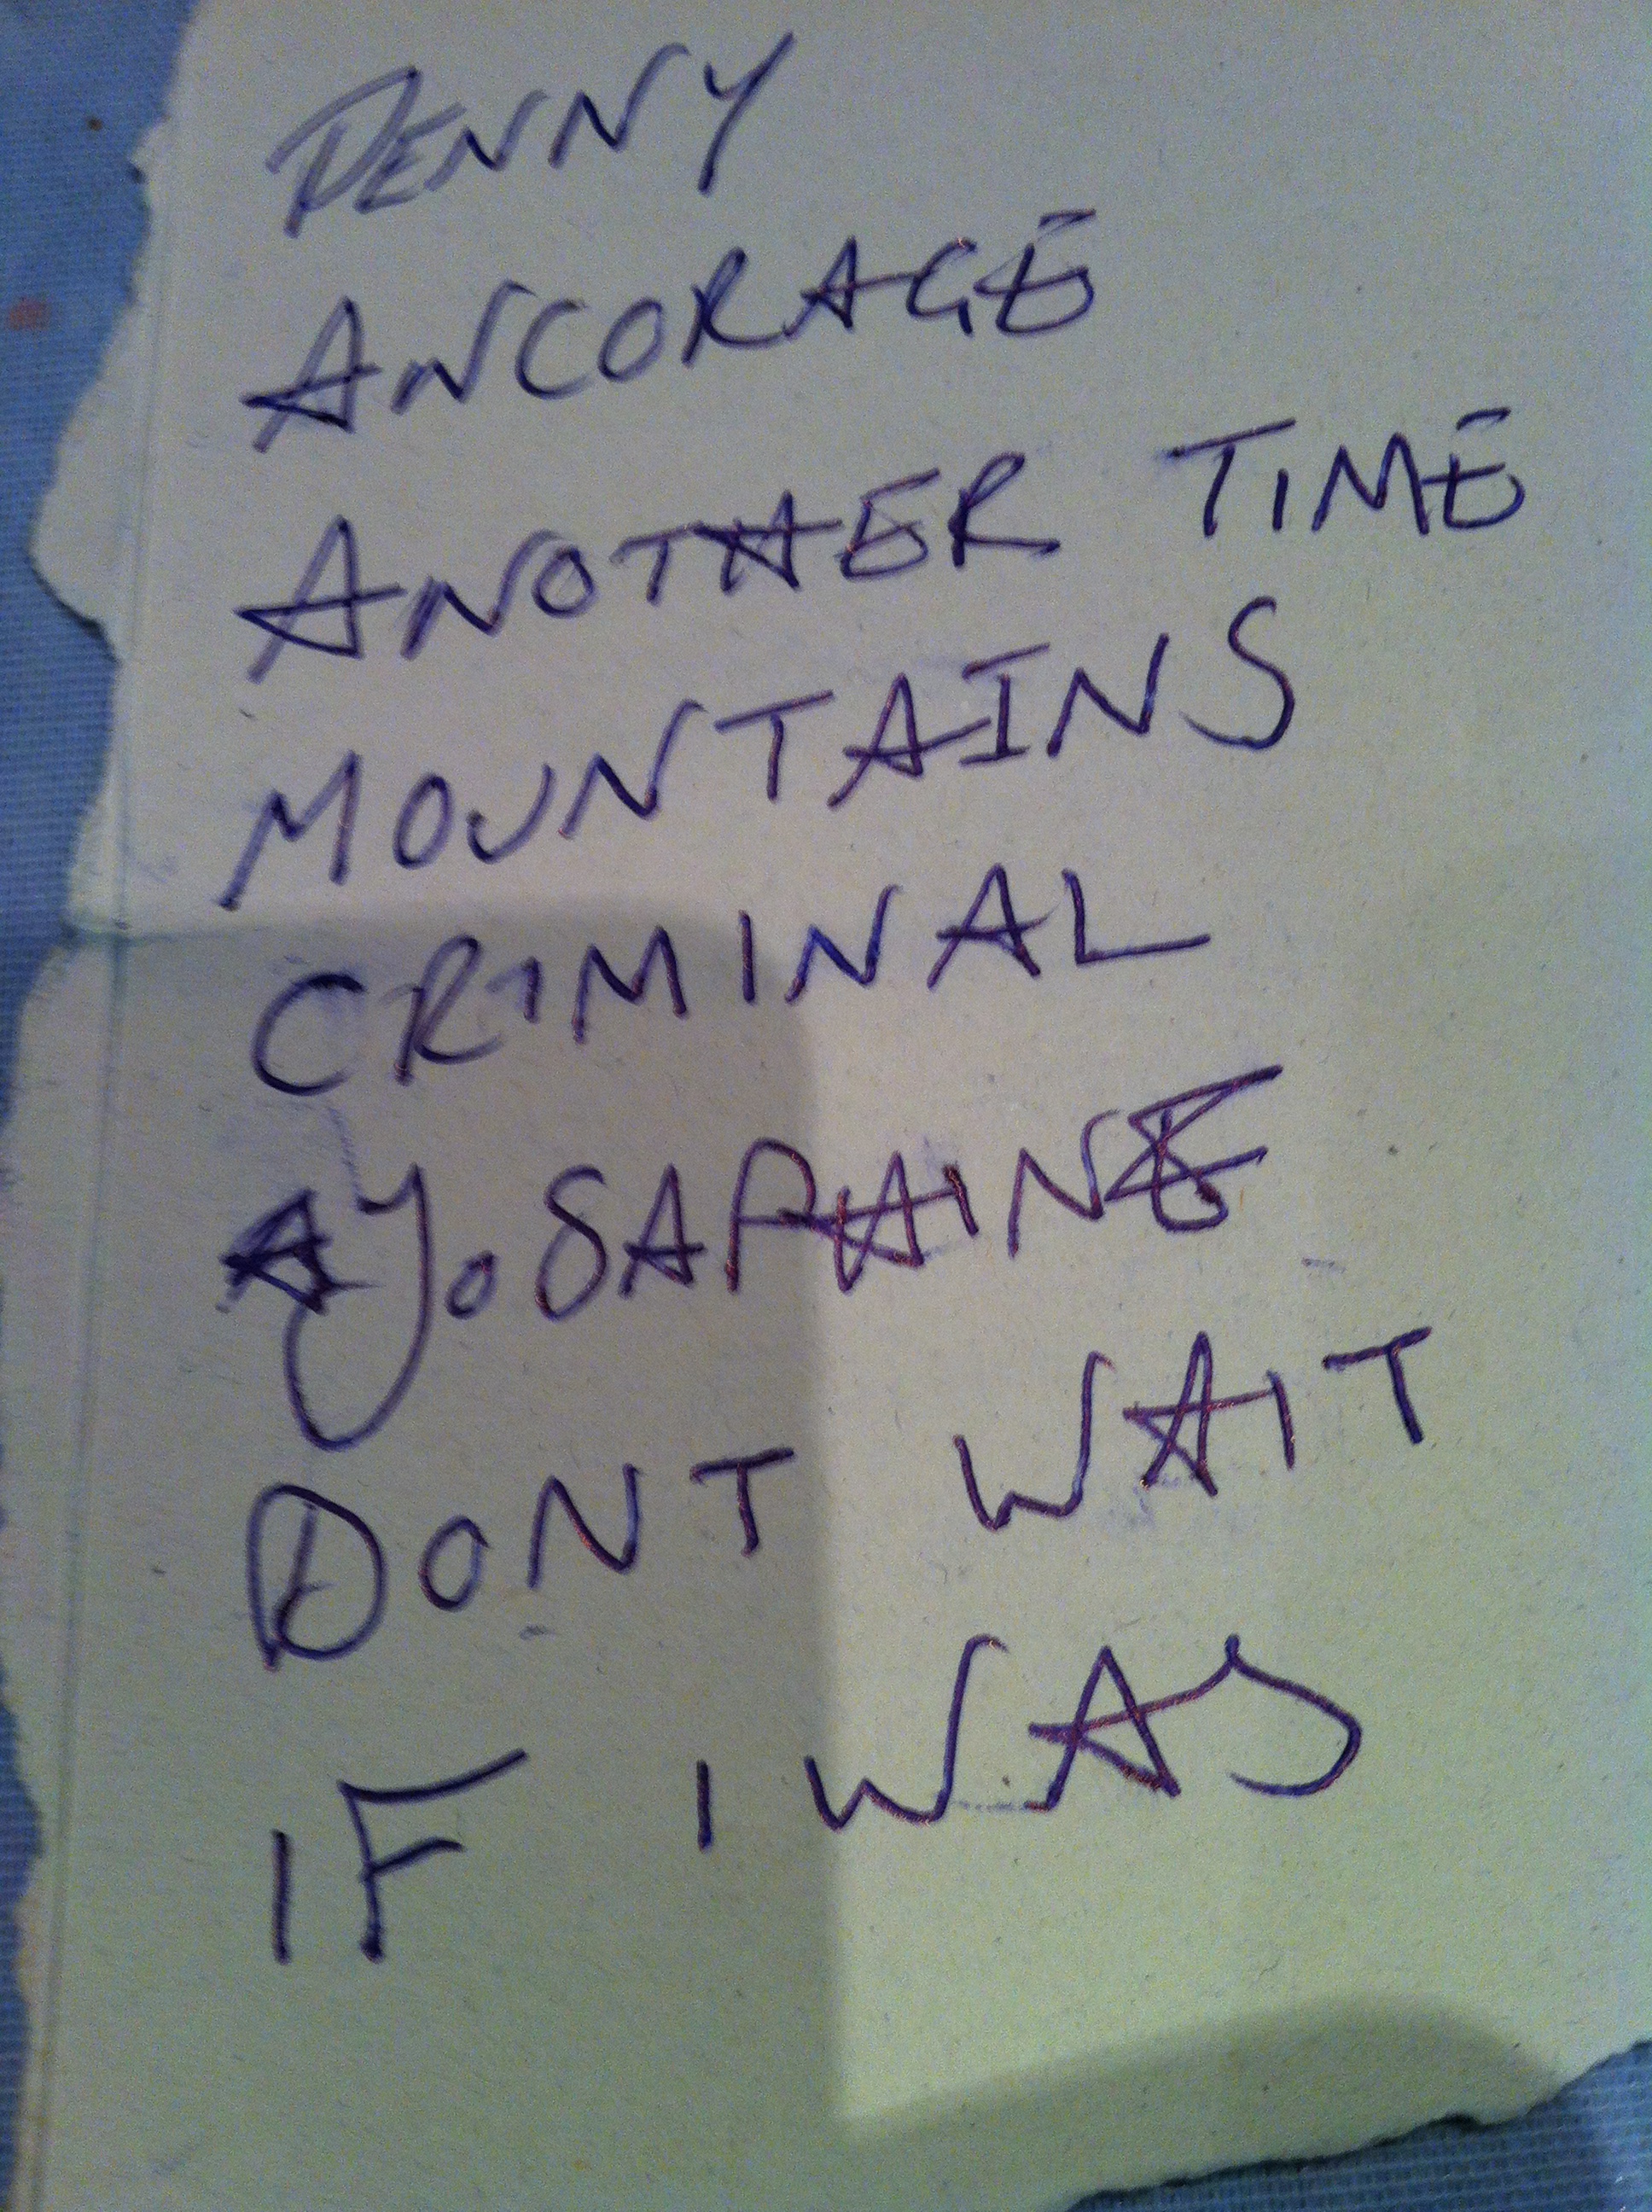 PENNY
ANCORAGE
ANOTHER TIME
MOUNTAINS
CRIMINAL
YOSAPHINE
DONT WAIT
IF I WAS